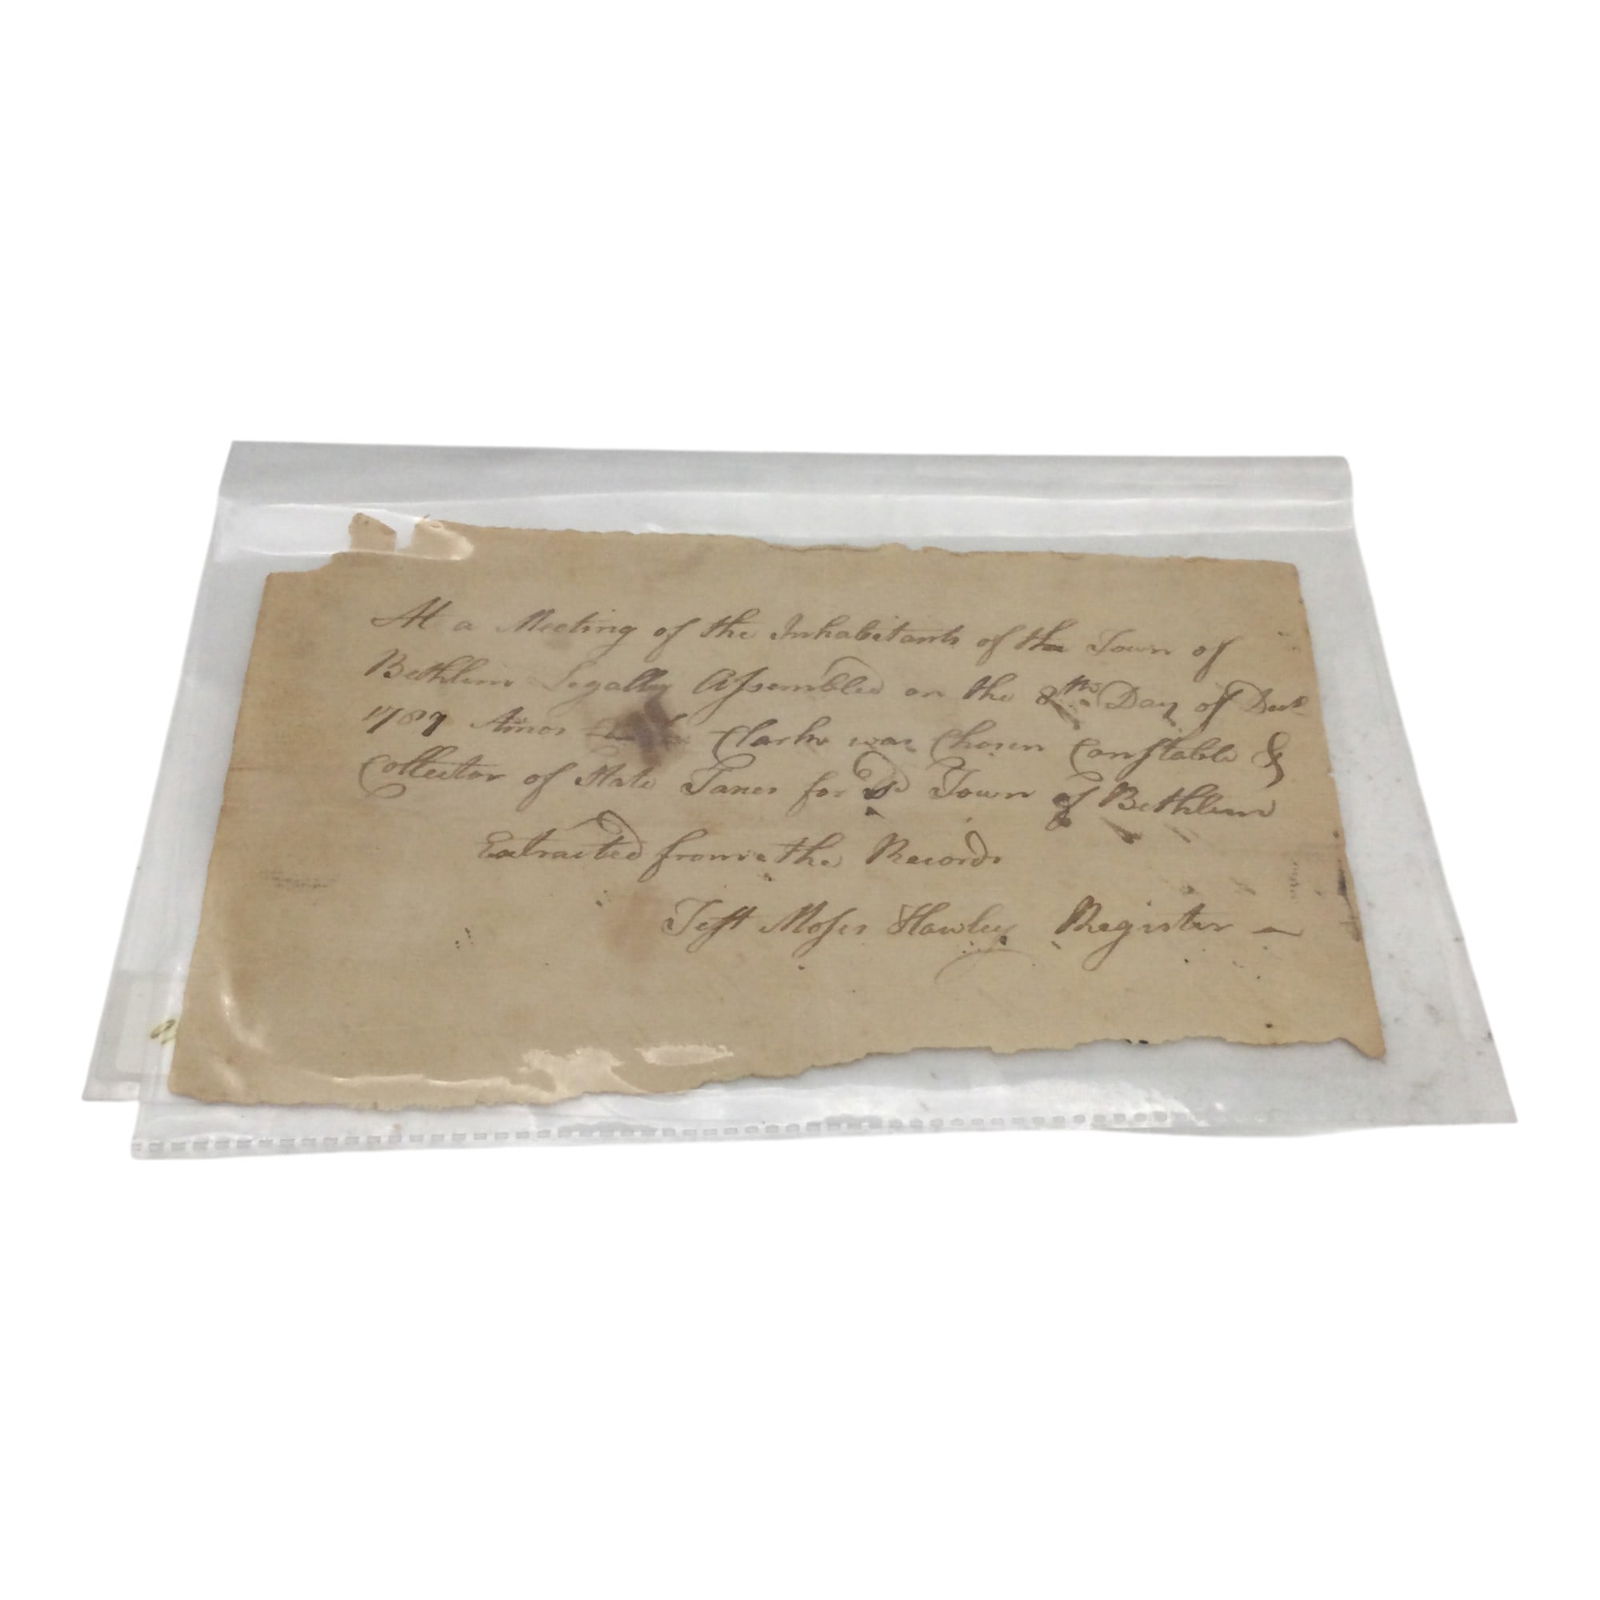 At a Meeting of the Inhabitants of the Town of
Bethlem Legally Assembled on the 8th Day of Decr
1789 Amos Clark was Chosen Constable &
Collector of State Taxes for sd Town of Bethlem
Extracted from the Records
Test Moses Hawley Register